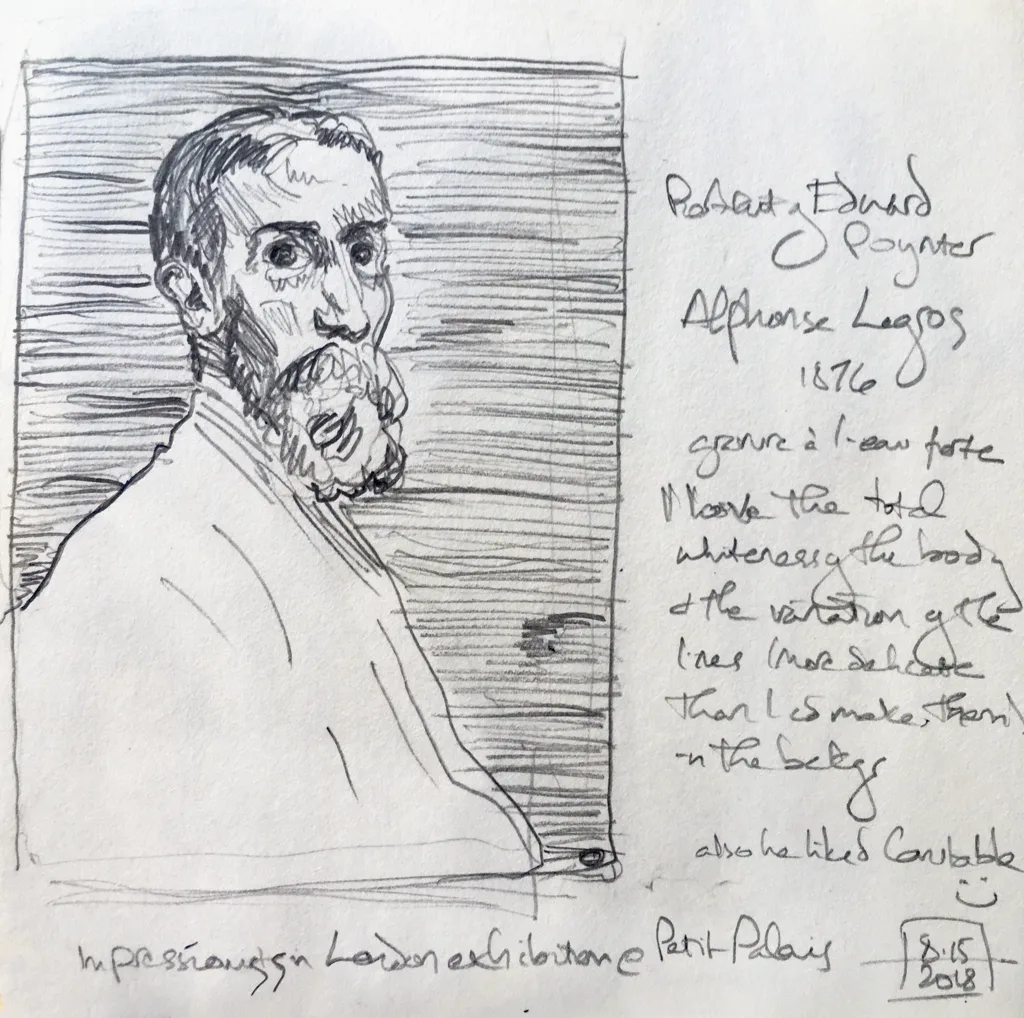 Portrait of Edward
Poynter
Alphonse Legros
1876
gravure à l'eau forte
I love the total
whiteness of the body
& the variation of the
lines (more delicate
than I cd make them)
in the backgr
also he liked Constable
Impressionists in London exhibition @ Petit Palais
8.15
2018